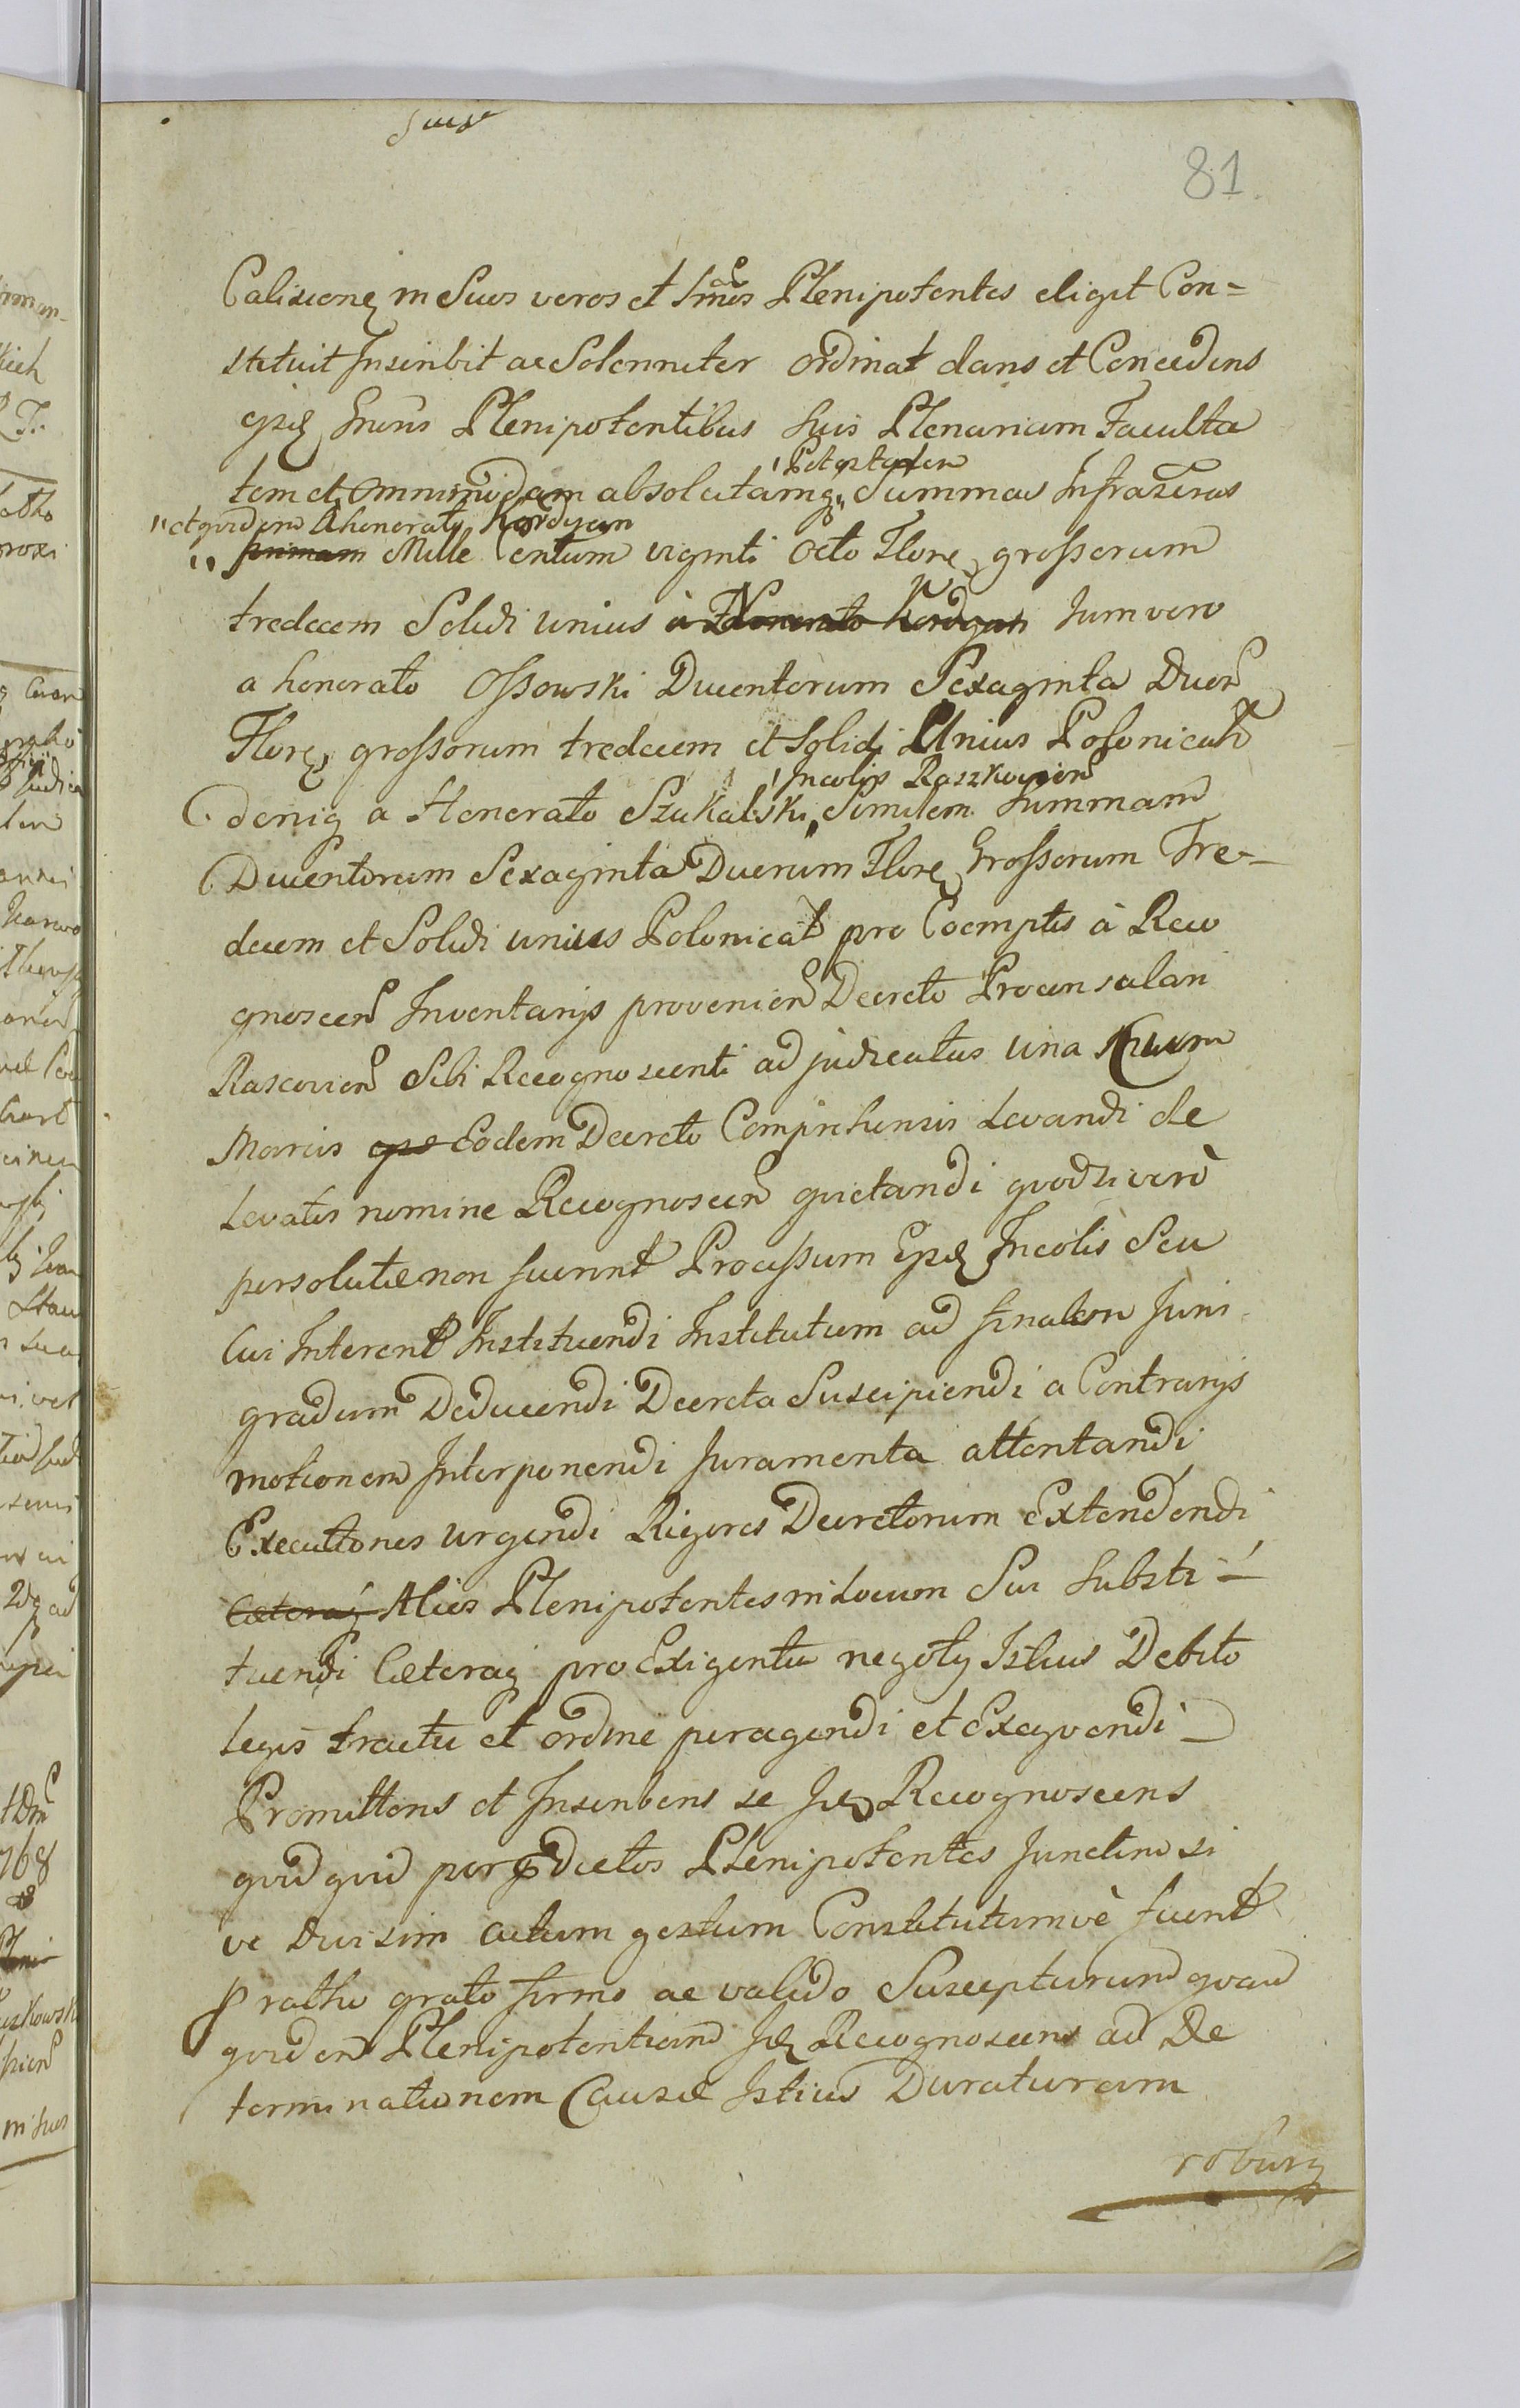 81
Calisiens in Suos veros et lrmos Plenipotentes eligit Con=
stituit Inscribit ac Solenniter ordinat dans et Concedens
Plenipotentibus suis Plenariam Faculta
tem et omnimodam absolutamq „ Potestatem Summas Infrascras
„ et quidem a honorato Kordyan
„ primam Mille Centum viginti octo Flore, grossorum
tredecem Solidi unius à Honorato Kordyan tum vero
a honorato Ossowski Ducentorum Sexaginta Duor
Flore, grossorum tredecem et Solidi Unius Polonicat
deniq a Honorato Szukalski „ Incolis Raszkovien Similem Summam
Ducentorum Sexaginta Duorum Flore, Grossorum Tre-
decem et Solidi unius Polonicat pro Coemptis à Reco
gnoscen Inventarys provenien Decreto Proconsulari
Rascovien Sibi Recognoscenti adjudicatas una cum
Marcis Eodem Decreto Comprehensis Levandi de
Levatis nomine Recognoscen quietandi quod si verò
persolutæ non fuerint Processum Incolis Seu
Cui Intererit Instituendi Institutum ad finalem Juri
gradum Deducendi Decreta Suscipiendi a Contrarys
motionem Interponendi Juramenta attentandi
Executiones urgendi Rigores Decretorum Extendendi
Cæteraq Alios Plenipotentes in Locum Sui Substi-
tuendi Cæteraq pro Exigentia negoty Istius Debito
Legis tractu et ordine peragendi et Exequendi
Promittens et Inscribens se Recognoscens
quidquid per pdictos Plenipotentes Junctim si
ve Divisim actum gestum Constitutumvè fuerit
p ratho grato firmo ac valido Suscepturum quam
quidem Plenipotentiam Recognoscens ad De
terminationem Causæ Istius Duraturam
robur